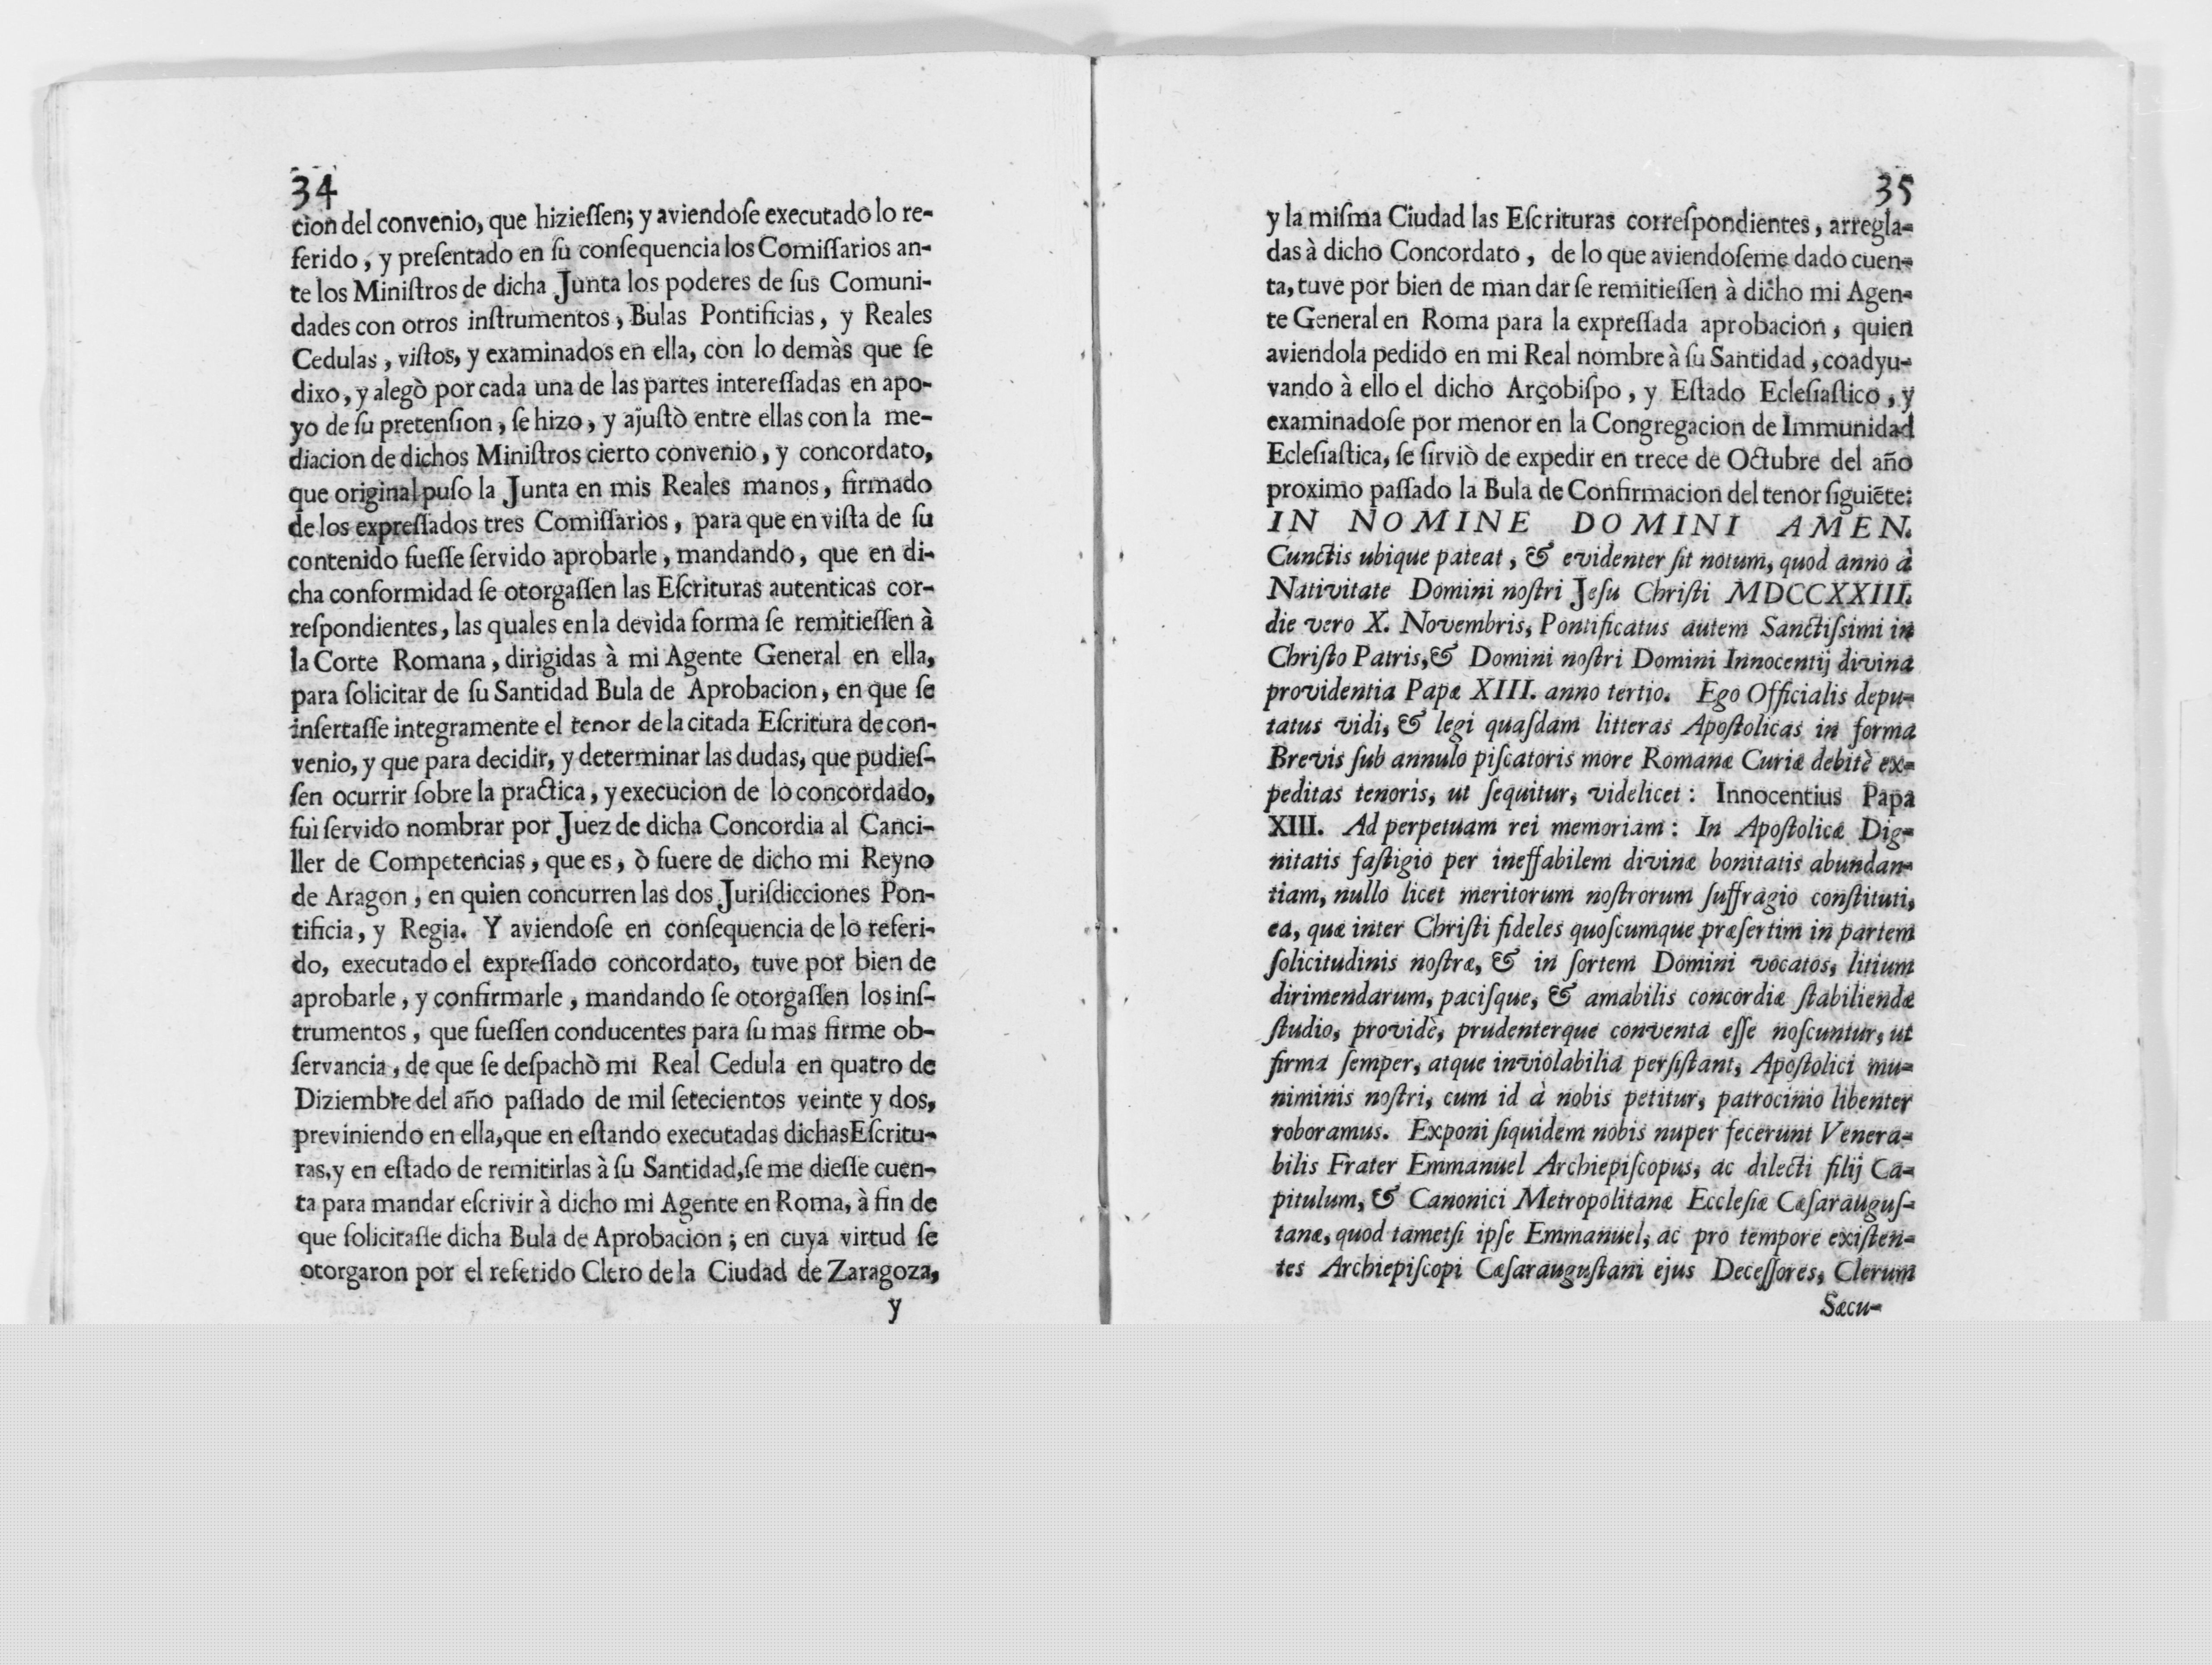 34
cion del convenio, que hizieſſen; y aviendoſe executado lo re-
ferido, y preſentado en ſu conſequencia los Comiſſarios an-
te los Miniſtros de dicha Junta los poderes de ſus Comuni-
dades con otros inſtrumentos, Bulas Pontificias, y Reales
Cedulas, viſtos, y examinados en ella, con lo demàs que ſe
dixo, y alegò por cada una de las partes intereſſadas en apo-
yo de ſu pretenſion, ſe hizo, y ajuſtò entre ellas con la me-
diacion de dichos Miniſtros cierto convenio, y concordato,
que original puſo la Junta en mis Reales manos, firmado
de los expreſſados tres Comiſſarios, para que en viſta de ſu
contenido fueſſe ſervido aprobarle, mandando, que en di-
cha conformidad ſe otorgaſſen las Eſcrituras autenticas cor-
reſpondientes, las quales en la devida forma ſe remitieſſen à
la Corte Romana, dirigidas à mi Agente General en ella,
para ſolicitar de ſu Santidad Bula de Aprobacion, en que ſe
inſertaſſe integramente el tenor de la citada Eſcritura de con-
venio, y que para decidir, y determinar las dudas, que pudieſ-
ſen ocurrir ſobre la practica, y execucion de lo concordado,
fui ſervido nombrar por Juez de dicha Concordia al Canci-
ller de Competencias, que es, ò fuere de dicho mi Reyno
de Aragon, en quien concurren las dos Juriſdicciones Pon-
tificia, y Regia. Y aviendoſe en conſequencia de lo referi-
do, executado el expreſſado concordato, tuve por bien de
aprobarle, y confirmarle, mandando ſe otorgaſſen los inſ-
trumentos, que fueſſen conducentes para ſu mas firme ob-
ſervancia, de que ſe deſpachò mi Real Cedula en quatro de
Diziembre del año paſſado de mil ſetecientos veinte y dos,
previniendo en ella, que en eſtando executadas dichas Eſcritu-
ras, y en eſtado de remitirlas à ſu Santidad, ſe me dieſſe cuen-
ta para mandar eſcrivir à dicho mi Agente en Roma, à fin de
que ſolicitaſſe dicha Bula de Aprobacion; en cuya virtud ſe
otorgaron por el referido Clero de la Ciudad de Zaragoza,
y
35
y la miſma Ciudad las Eſcrituras correſpondientes, arregla-
das à dicho Concordato, de lo que aviendoſeme dado cuen-
ta, tuve por bien de man dar ſe remitieſſen à dicho mi Agen-
te General en Roma para la expreſſada aprobacion, quien
aviendola pedido en mi Real nombre à ſu Santidad, coadyu-
vando à ello el dicho Arçobiſpo, y Eſtado Ecleſiaſtico, y
examinadoſe por menor en la Congregacion de Immunidad
Ecleſiaſtica, ſe ſirviò de expedir en trece de Octubre del año
proximo paſſado la Bula de Confirmacion del tenor ſiguiẽte:
IN NOMINE DOMINI AMEN.
Cunctis ubique pateat, & evidenter ſit notum, quod anno à
Nativitate Domini noſtri Jeſu Chriſti MDCCXXIII.
die vero X. Novembris, Pontificatus autem Sanctiſsimi in
Chriſto Patris, & Domini noſtri Domini Innocentij divina
providentia Papæ XIII. anno tertio. Ego Officialis depu-
tatus vidi, & legi quaſdam litteras Apoſtolicas in forma
Brevis ſub annulo piſcatoris more Romanæ Curiæ debitè ex-
peditas tenoris, ut ſequitur, videlicet: Innocentius Papa
XIII. Ad perpetuam rei memoriam: In Apoſtolicæ Dig-
nitatis faſtigio per ineffabilem divinæ bonitatis abundan-
tiam, nullo licet meritorum noſtrorum ſuffragio conſtituti,
ea, quæ inter Chriſti fideles quoſcumque præſertim in partem
ſolicitudinis noſtræ, & in ſortem Domini vocatos, litium
dirimendarum, paciſque, & amabilis concordiæ ſtabiliendæ
ſtudio, providè, prudenterque conventa eſſe noſcuntur, ut
firma ſemper, atque inviolabilia perſiſtant, Apoſtolici mu-
niminis noſtri, cum id à nobis petitur, patrocinio libenter
roboramus. Exponi ſiquidem nobis nuper fecerunt Venera-
bilis Frater Emmanuel Archiepiſcopus, ac dilecti filij Ca-
pitulum, & Canonici Metropolitanæ Eccleſiæ Cæſarauguſ-
tanæ, quod tametſi ipſe Emmanuel, ac pro tempore exiſten-
tes Archiepiſcopi Cæſarauguſtani ejus Deceſſores, Clerum
Sæcu-